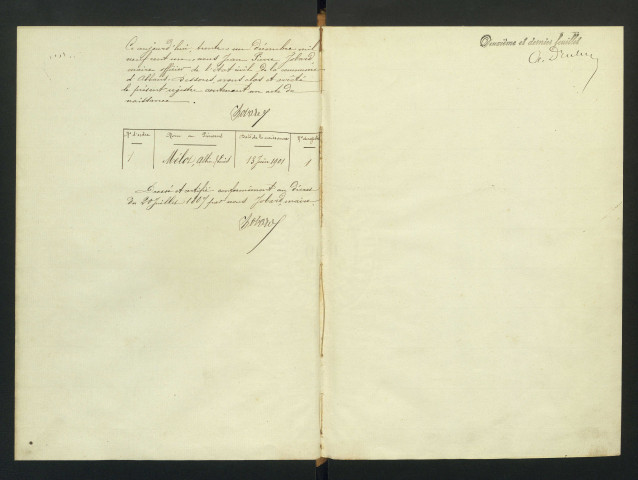 Ce aujourd'hui trente un décembre mil
neuf cent un nous Jean Pierre Jobard
maire officier de l'Etat civil de la commune
d' avons clos et arrêté
le présent registre contenant un acte de
naissance.
Jobard
N° d'ordre Noms et Prénoms Date de la naissance N° du
1 Milot, Louis 13 Juin 1901 1
Dressé et certifié conformément au décret
du 20 Juillet 1807 par nous Jobard maire
Jobard
Deuxième et dernier feuillet